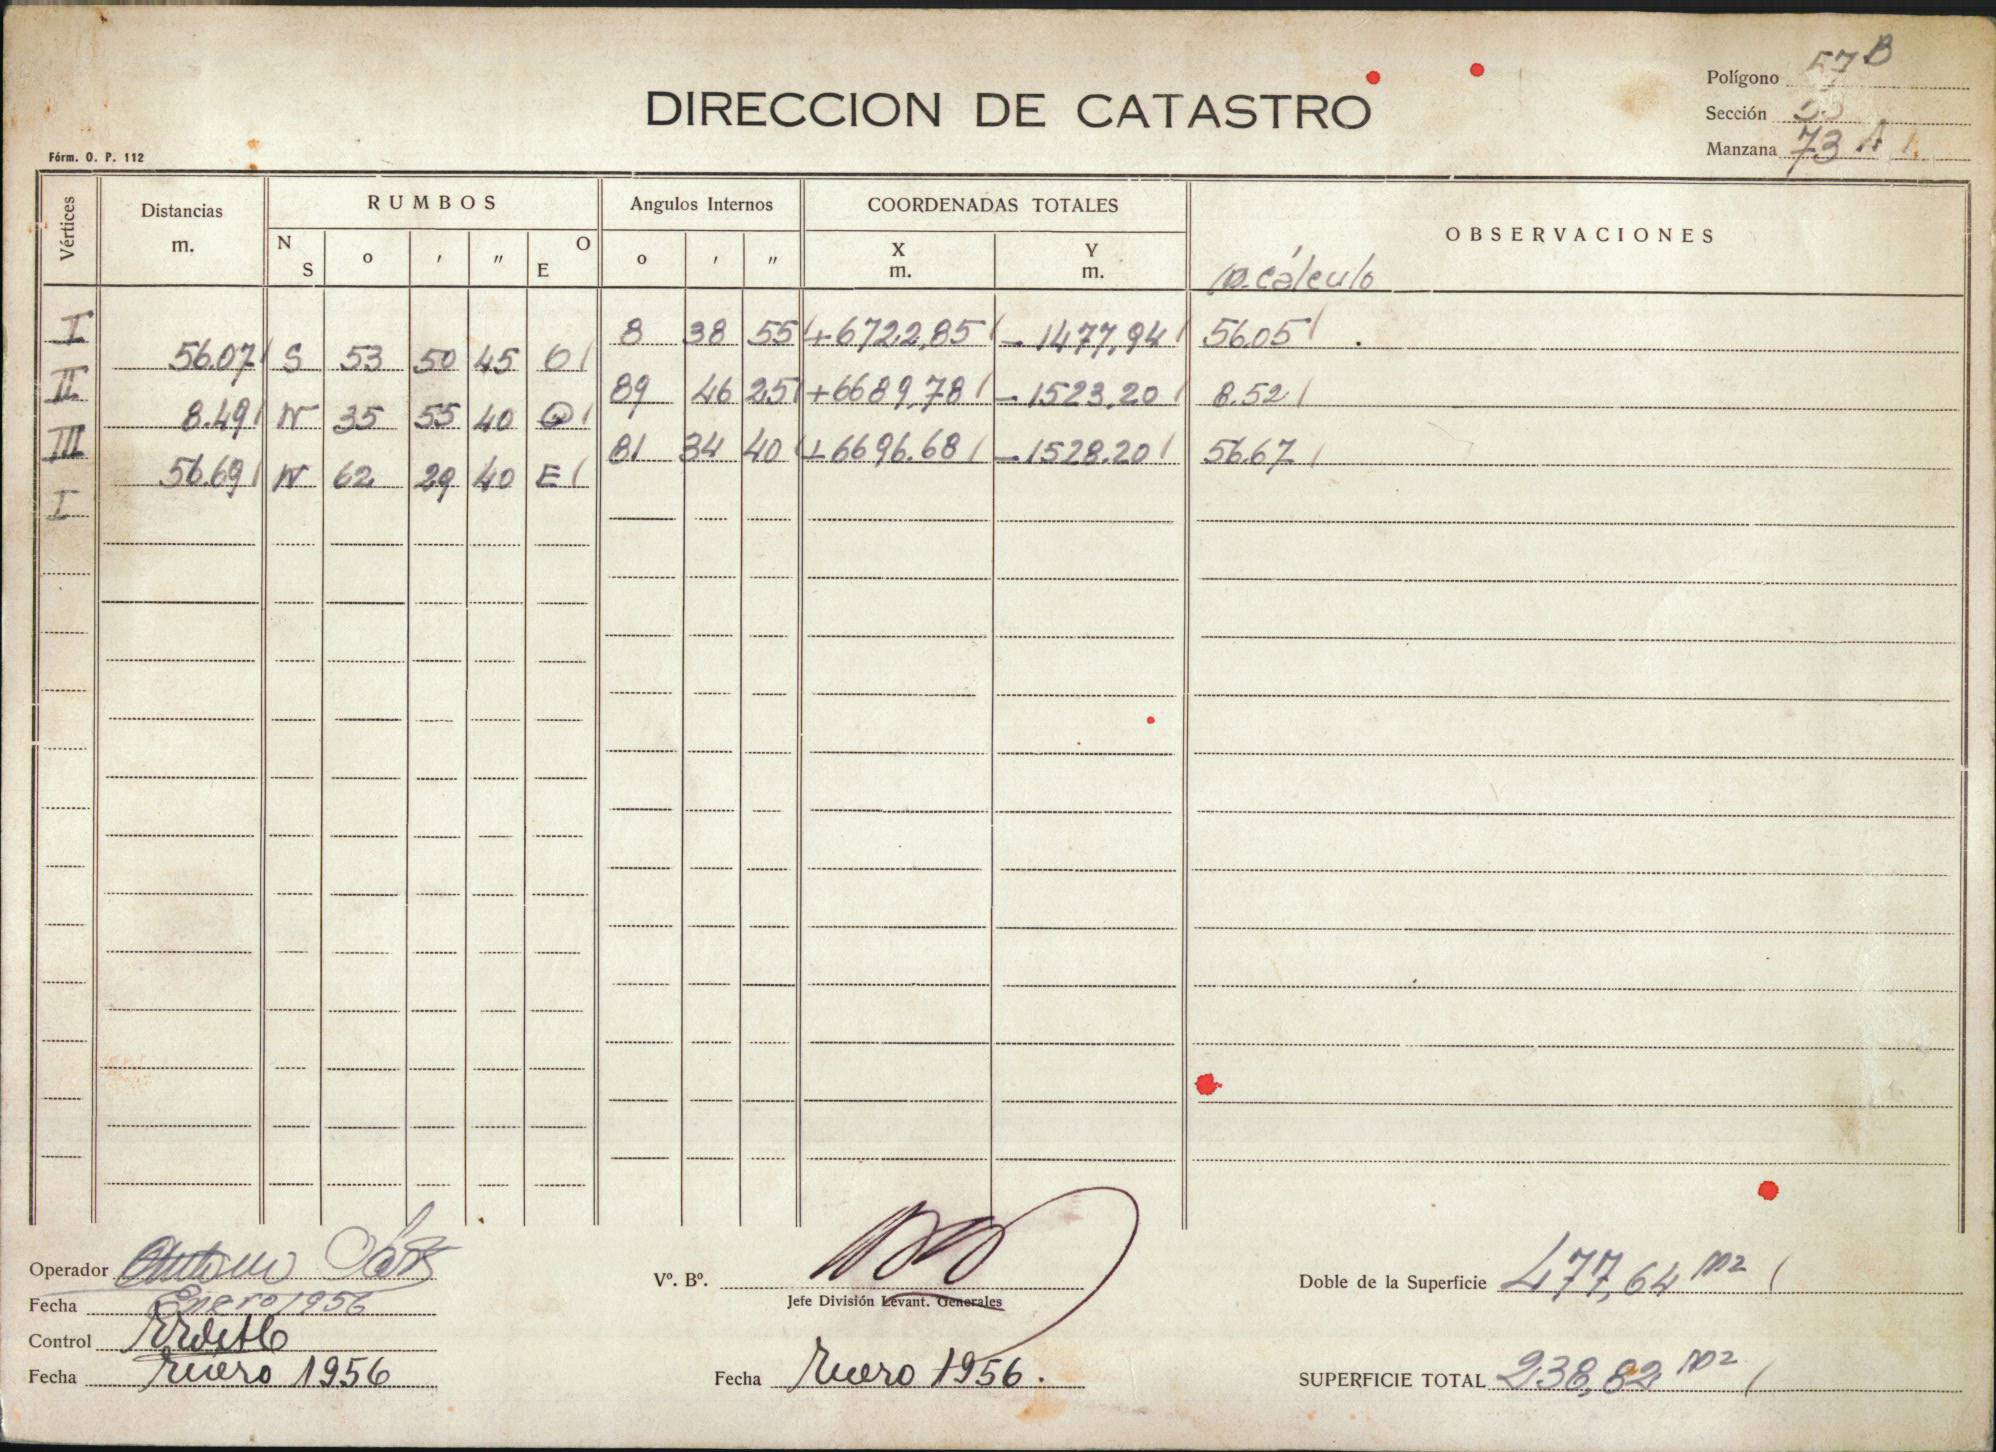 Polígono 57 B
DIRECCION DE CATASTRO
Sección
Manzana 73 A
Fórm. O. P. 112
Vértices Distancias m. RUMBOS Angulos Internos COORDENADAS TOTALES OBSERVACIONES
N S o ' " O E o ' " X m. Y m. cálculo
I 8 38 55 +6722,85 -1477,94 56.05
56.07 S 53 50 45 O
II 89 46 25 +6689,78 -1523,20 8.52
8.49 N 35 55 40 O
III 81 34 40 +6696.68 -1528.20 56.67
56.69 N 62 29 40 E
I
Operador
Vº. Bº.
Doble de la Superficie 477,64 m2
Fecha Enero 1956
Jefe División Levant. Generales
Control
Fecha Enero 1956
Fecha Enero 1956.
SUPERFICIE TOTAL 238,82 m2